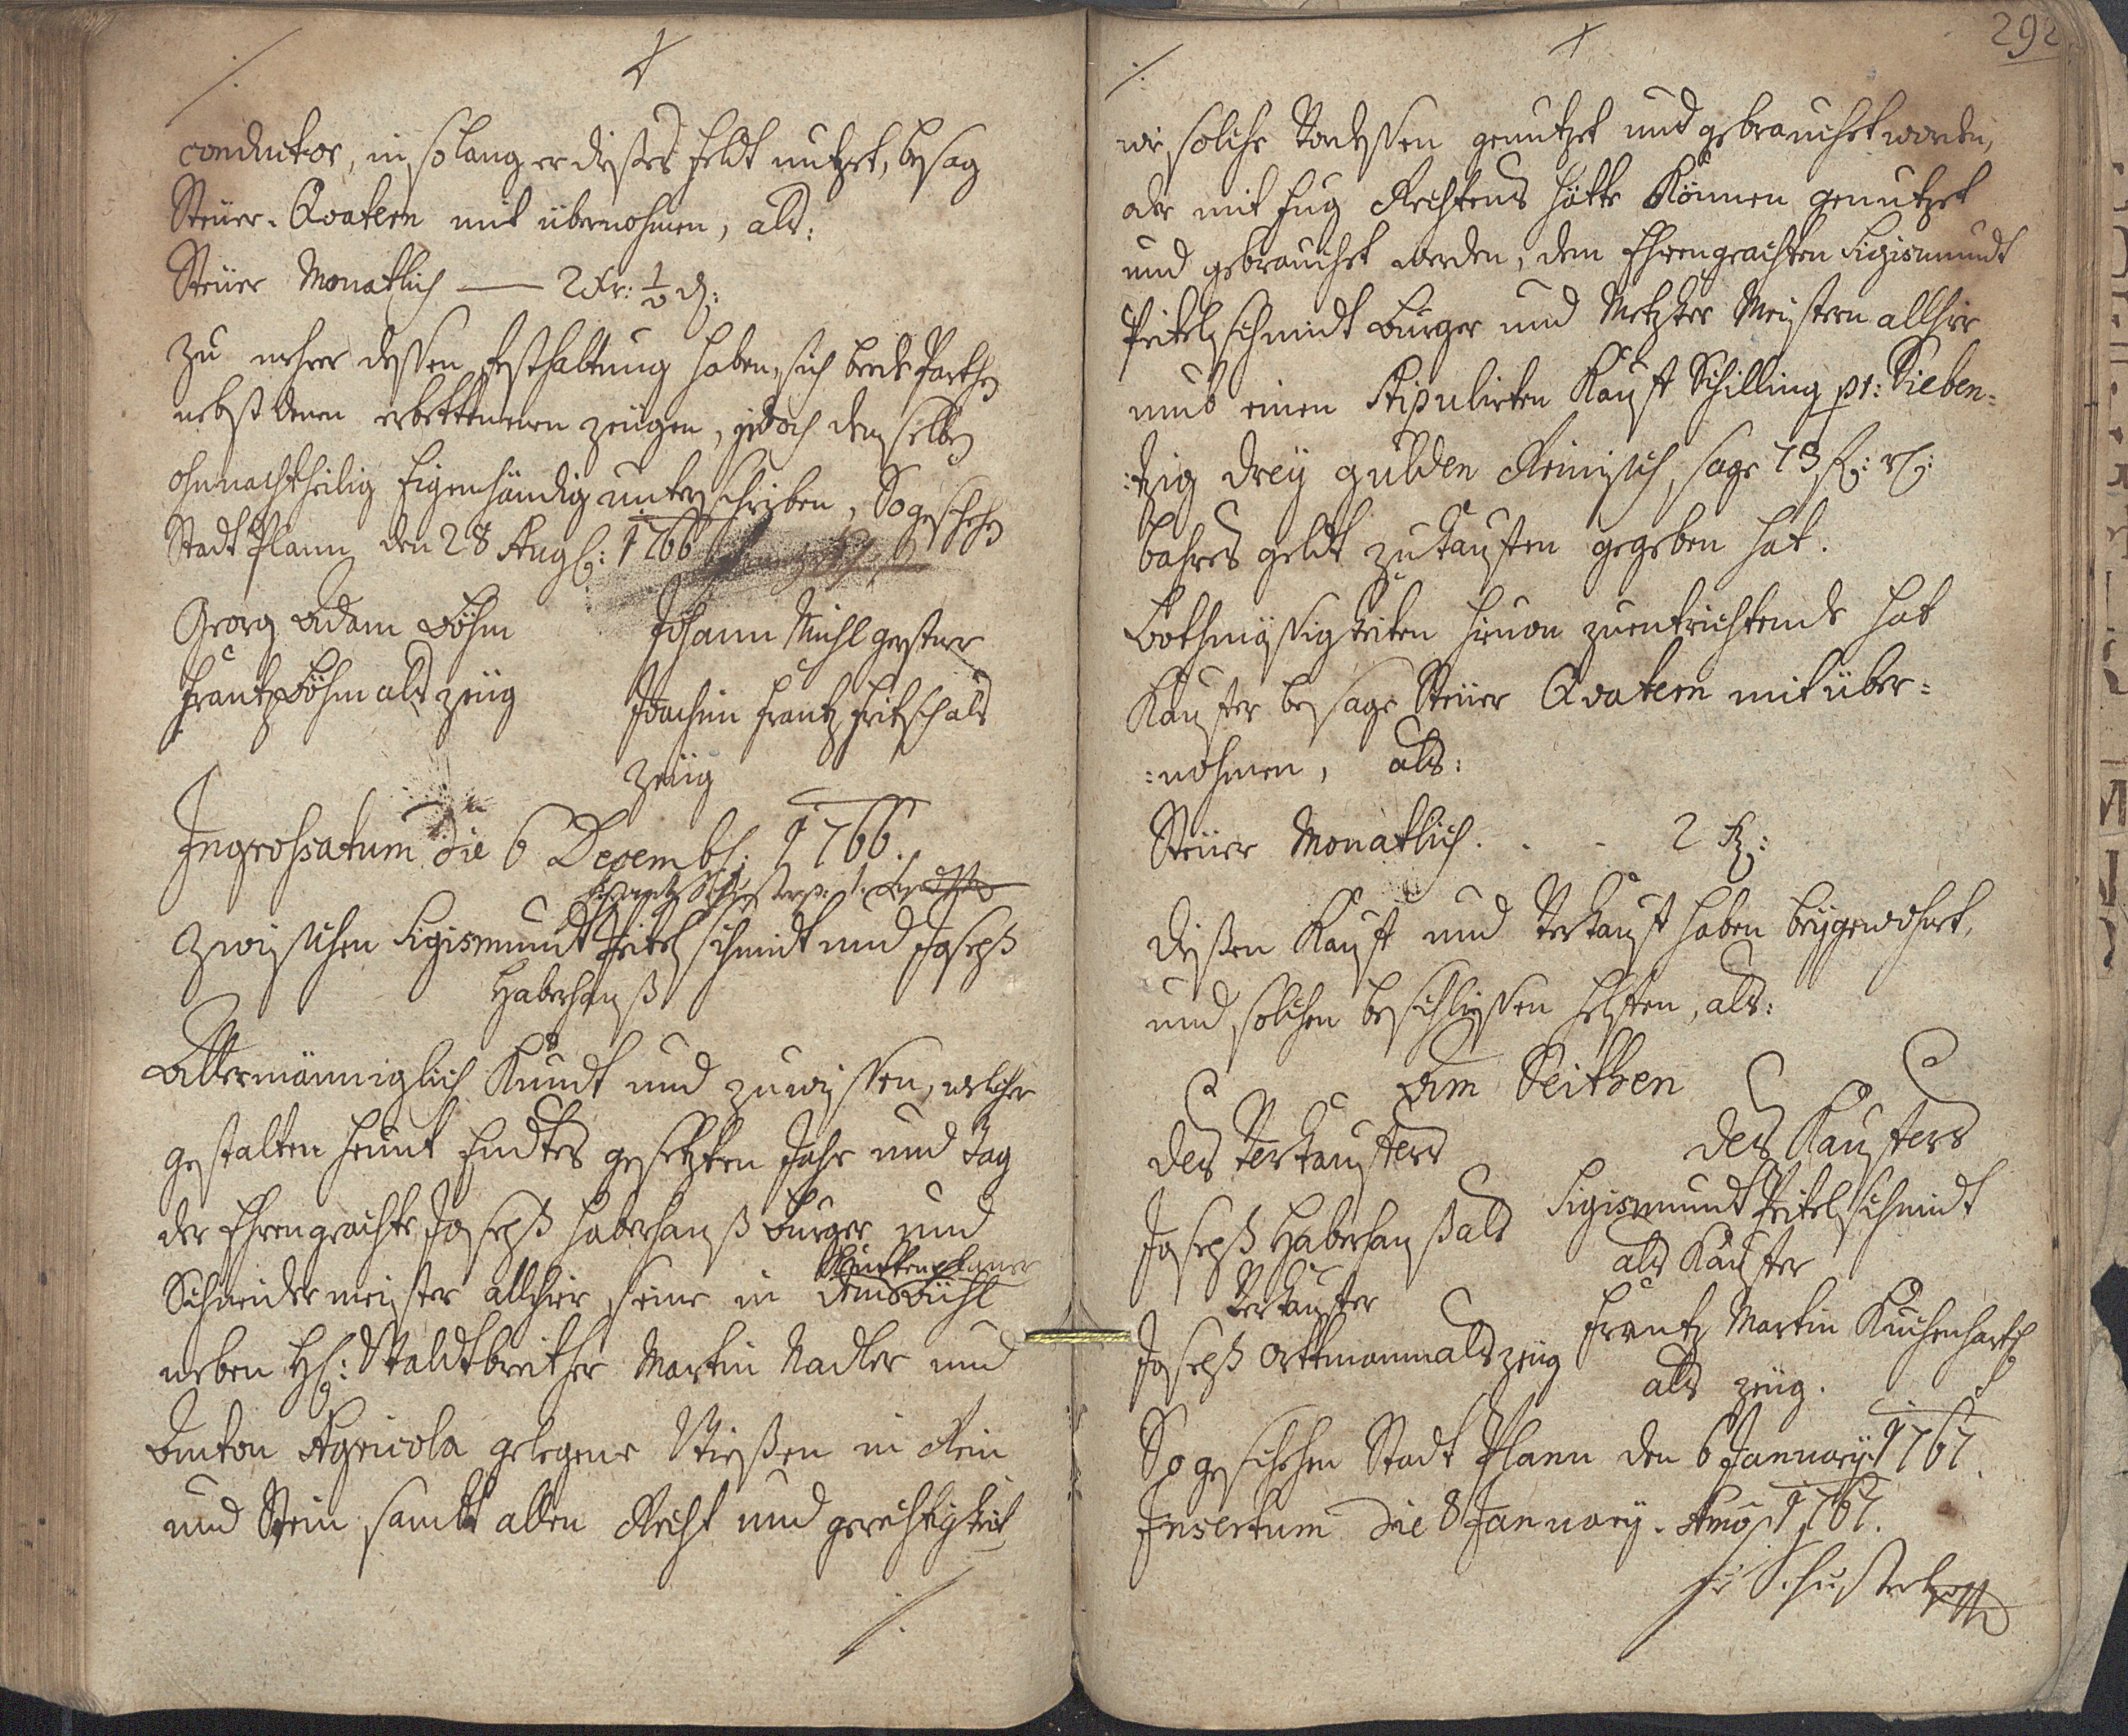 conductor, in so lang er dießes Feldt nutzet, besag
Steüer-Quatern mit übernohmen, als:
Steüer Monatlich — 2 Kr: ½ d:
Zu mehrer dessen Festhaltung haben sich beede Partheÿ
nebst denen erbettenenen Zeügen, jedoch denselben
ohnnachtheilig Eigenhändig unterschriben, So geschehen
Stadt Plann den 28 Aug: 1766
Georg Adam Böhm
Johann Michl Gerstner
Frantz Böhm als Zeüg
Joachim Frantz Fritsch als
Zeüg
Ingrossatum die 6 Decembr: 1766.
Zwischen Sigismundt Peitelschmidt und Joseph
Haberhauß
Allermänniglich Kundt und zuwissen, welcher
gestalten heunt Endtes gesetzten Jahr und Tag
der Ehrengeachte Joseph Haberhauß Burger und
Schneidermeister allhier seine in
neben H: Martin Nadler und
Anton Agricola gelegene Wießen in Rein
und Stein sambt allen Recht und gerechtigkeit
./.
292
./.
wie solche Vondessen genutzet und gebrauchet worden,
oder mit Fug Rechtens hätte Können genutzet
und gebrauchet werden, dem Ehrengeachten Sigismundt
Peitelschmidt Burger und Metzger Meistern allhier
umb einen Stipulirten Kauf Schilling pr: Sieben=
:tzig dreÿ gulden Reinisch, sage 73 f: rh:
bahres geldt zu kauffen gegeben hat.
Bothmäßigkeiten hievon zuentrichtende hat
Kauffer besage Steüer Quatern mit über=
:nohmen, als:
Steüer Monatlich . . . 2 Kr:
Dießen Kauff und Verkauff haben beÿgewohnt,
und solchen beschliessen helffen, als:
Am Seithen
des Verkauffers
des Kauffers
Joseph Haberhauß als
Sigismundt Peitelschmidt
Verkauffer
als Kauffer
Joseph Ottmann als Zeüg
Frantz Martin
als Zeüg.
So geschehen Stadt Plann den 6 Januarÿ 1767.
Insertum die 8 Januarÿ. Anno 1767.